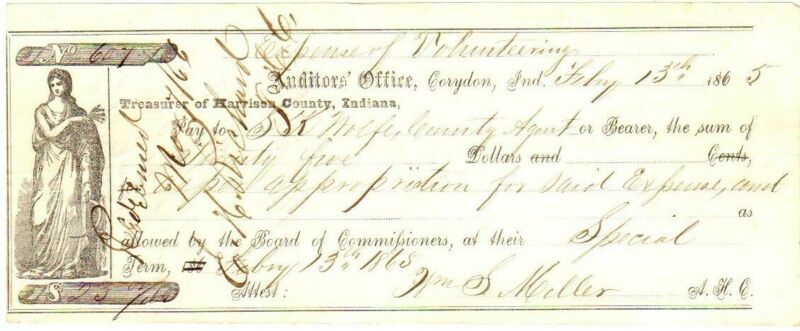 No 607
Expense of Volunteering
Auditors' Office, Corydon, Ind. Feby 13th 1865
Treasurer of Harrison County, Indiana,
Pay to S K Wolfe, County Agent or Bearer, the sum of
five Dollars and Cents,
as per appropriation for said Expense, and
as
allowed by the Board of Commissioners, at their Special
Term, Feby 13th 1865
Attest: Wm S Miller A. H. C.
$
Redeemed